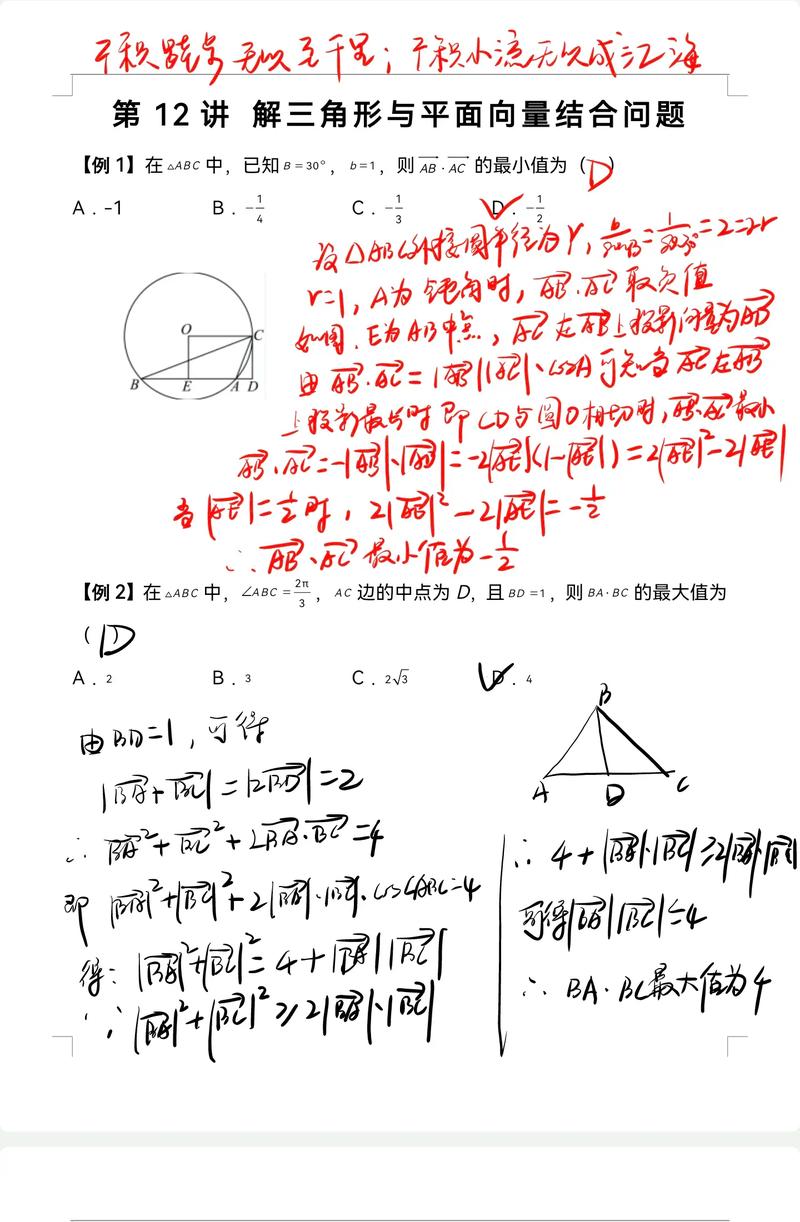 不积跬步无以至千里；不积小流无以成江海
第 12 讲 解三角形与平面向量结合问题
【例 1】在 △ABC 中，已知 B = 30°，b = 1，则 \overrightarrow{AB}·\overrightarrow{AC} 的最小值为（D）
A．-1 B．-\frac{1}{4} C．-\frac{1}{3} D．-\frac{1}{2}
设△ABC外接圆半径为r，\frac{b}{\sin B}=\frac{1}{\sin 30°}=2=2r
r=1，A为钝角时，\overrightarrow{AB}·\overrightarrow{AC}取负值
如图．E为AB中点，\overrightarrow{AC}在\overrightarrow{AB}上投影向量为\overrightarrow{AD}
由\overrightarrow{AB}·\overrightarrow{AC}=|\overrightarrow{AB}||\overrightarrow{AC}|·cosA可知当\overrightarrow{AC}在\overrightarrow{AB}
上投影最长时即CD与圆O相切时，\overrightarrow{AB}·\overrightarrow{AC}最小
\overrightarrow{AB}·\overrightarrow{AC}=-|\overrightarrow{AB}|·|\overrightarrow{AD}|=-2|\overrightarrow{AE}|(1-|\overrightarrow{AE}|)=2|\overrightarrow{AE}|²-2|\overrightarrow{AE}|
当|\overrightarrow{AE}|=\frac{1}{2}时，2|\overrightarrow{AE}|²-2|\overrightarrow{AE}|=-\frac{1}{2}
∴\overrightarrow{AB}·\overrightarrow{AC}最小值为-\frac{1}{2}
O
C
B
E
A
D
【例 2】在 △ABC 中，∠ABC = \frac{2π}{3}，AC 边的中点为 D，且 BD = 1，则 BA·BC 的最大值为
（D）
A．2 B．3 C．2\sqrt{3} D．4
由BD=1，可得
|\overrightarrow{BA}+\overrightarrow{BC}|=|2\overrightarrow{BD}|=2
∴\overrightarrow{BA}²+\overrightarrow{BC}²+2\overrightarrow{BA}·\overrightarrow{BC}=4
即|\overrightarrow{BA}|²+|\overrightarrow{BC}|²+2|\overrightarrow{BA}|·|\overrightarrow{BC}|·cos∠ABC=4
得：|\overrightarrow{BA}|²+|\overrightarrow{BC}|²=4+|\overrightarrow{BA}||\overrightarrow{BC}|
∵|\overrightarrow{BA}|²+|\overrightarrow{BC}|²≥2|\overrightarrow{BA}|·|\overrightarrow{BC}|
B
A
D
C
∴4+|\overrightarrow{BA}|·|\overrightarrow{BC}|≥2|\overrightarrow{BA}|·|\overrightarrow{BC}|
可得|\overrightarrow{BA}||\overrightarrow{BC}|≤4
∴BA·BC最大值为4